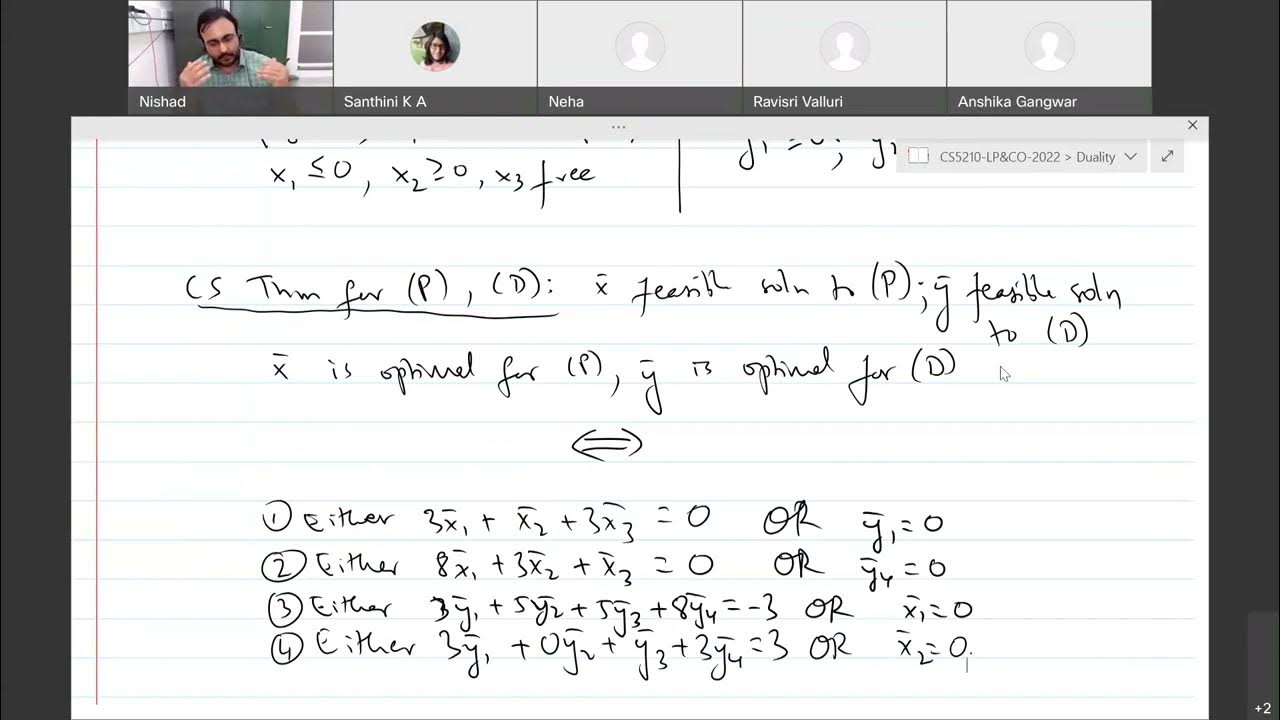 Nishad
Santhini K A
Neha
Ravisri Valluri
Anshika Gangwar
CS5210-LP&CO-2022 > Duality
x₁ ≤ 0, x₂ ≥ 0, x₃ free
CS Thm for (P), (D): x̄ feasible soln to (P); ȳ feasible soln
to (D)
x̄ is optimal for (P), ȳ is optimal for (D)
⟺
① Either 3x̄₁ + x̄₂ + 3x̄₃ = 0 OR ȳ₁ = 0
② Either 8x̄₁ + 3x̄₂ + x̄₃ = 0 OR ȳ₄ = 0
③ Either 3ȳ₁ + 5ȳ₂ + 5ȳ₃ + 8ȳ₄ = -3 OR x̄₁ = 0
④ Either 3ȳ₁ + 0ȳ₂ + ȳ₃ + 3ȳ₄ = 3 OR x̄₂ = 0;
+2